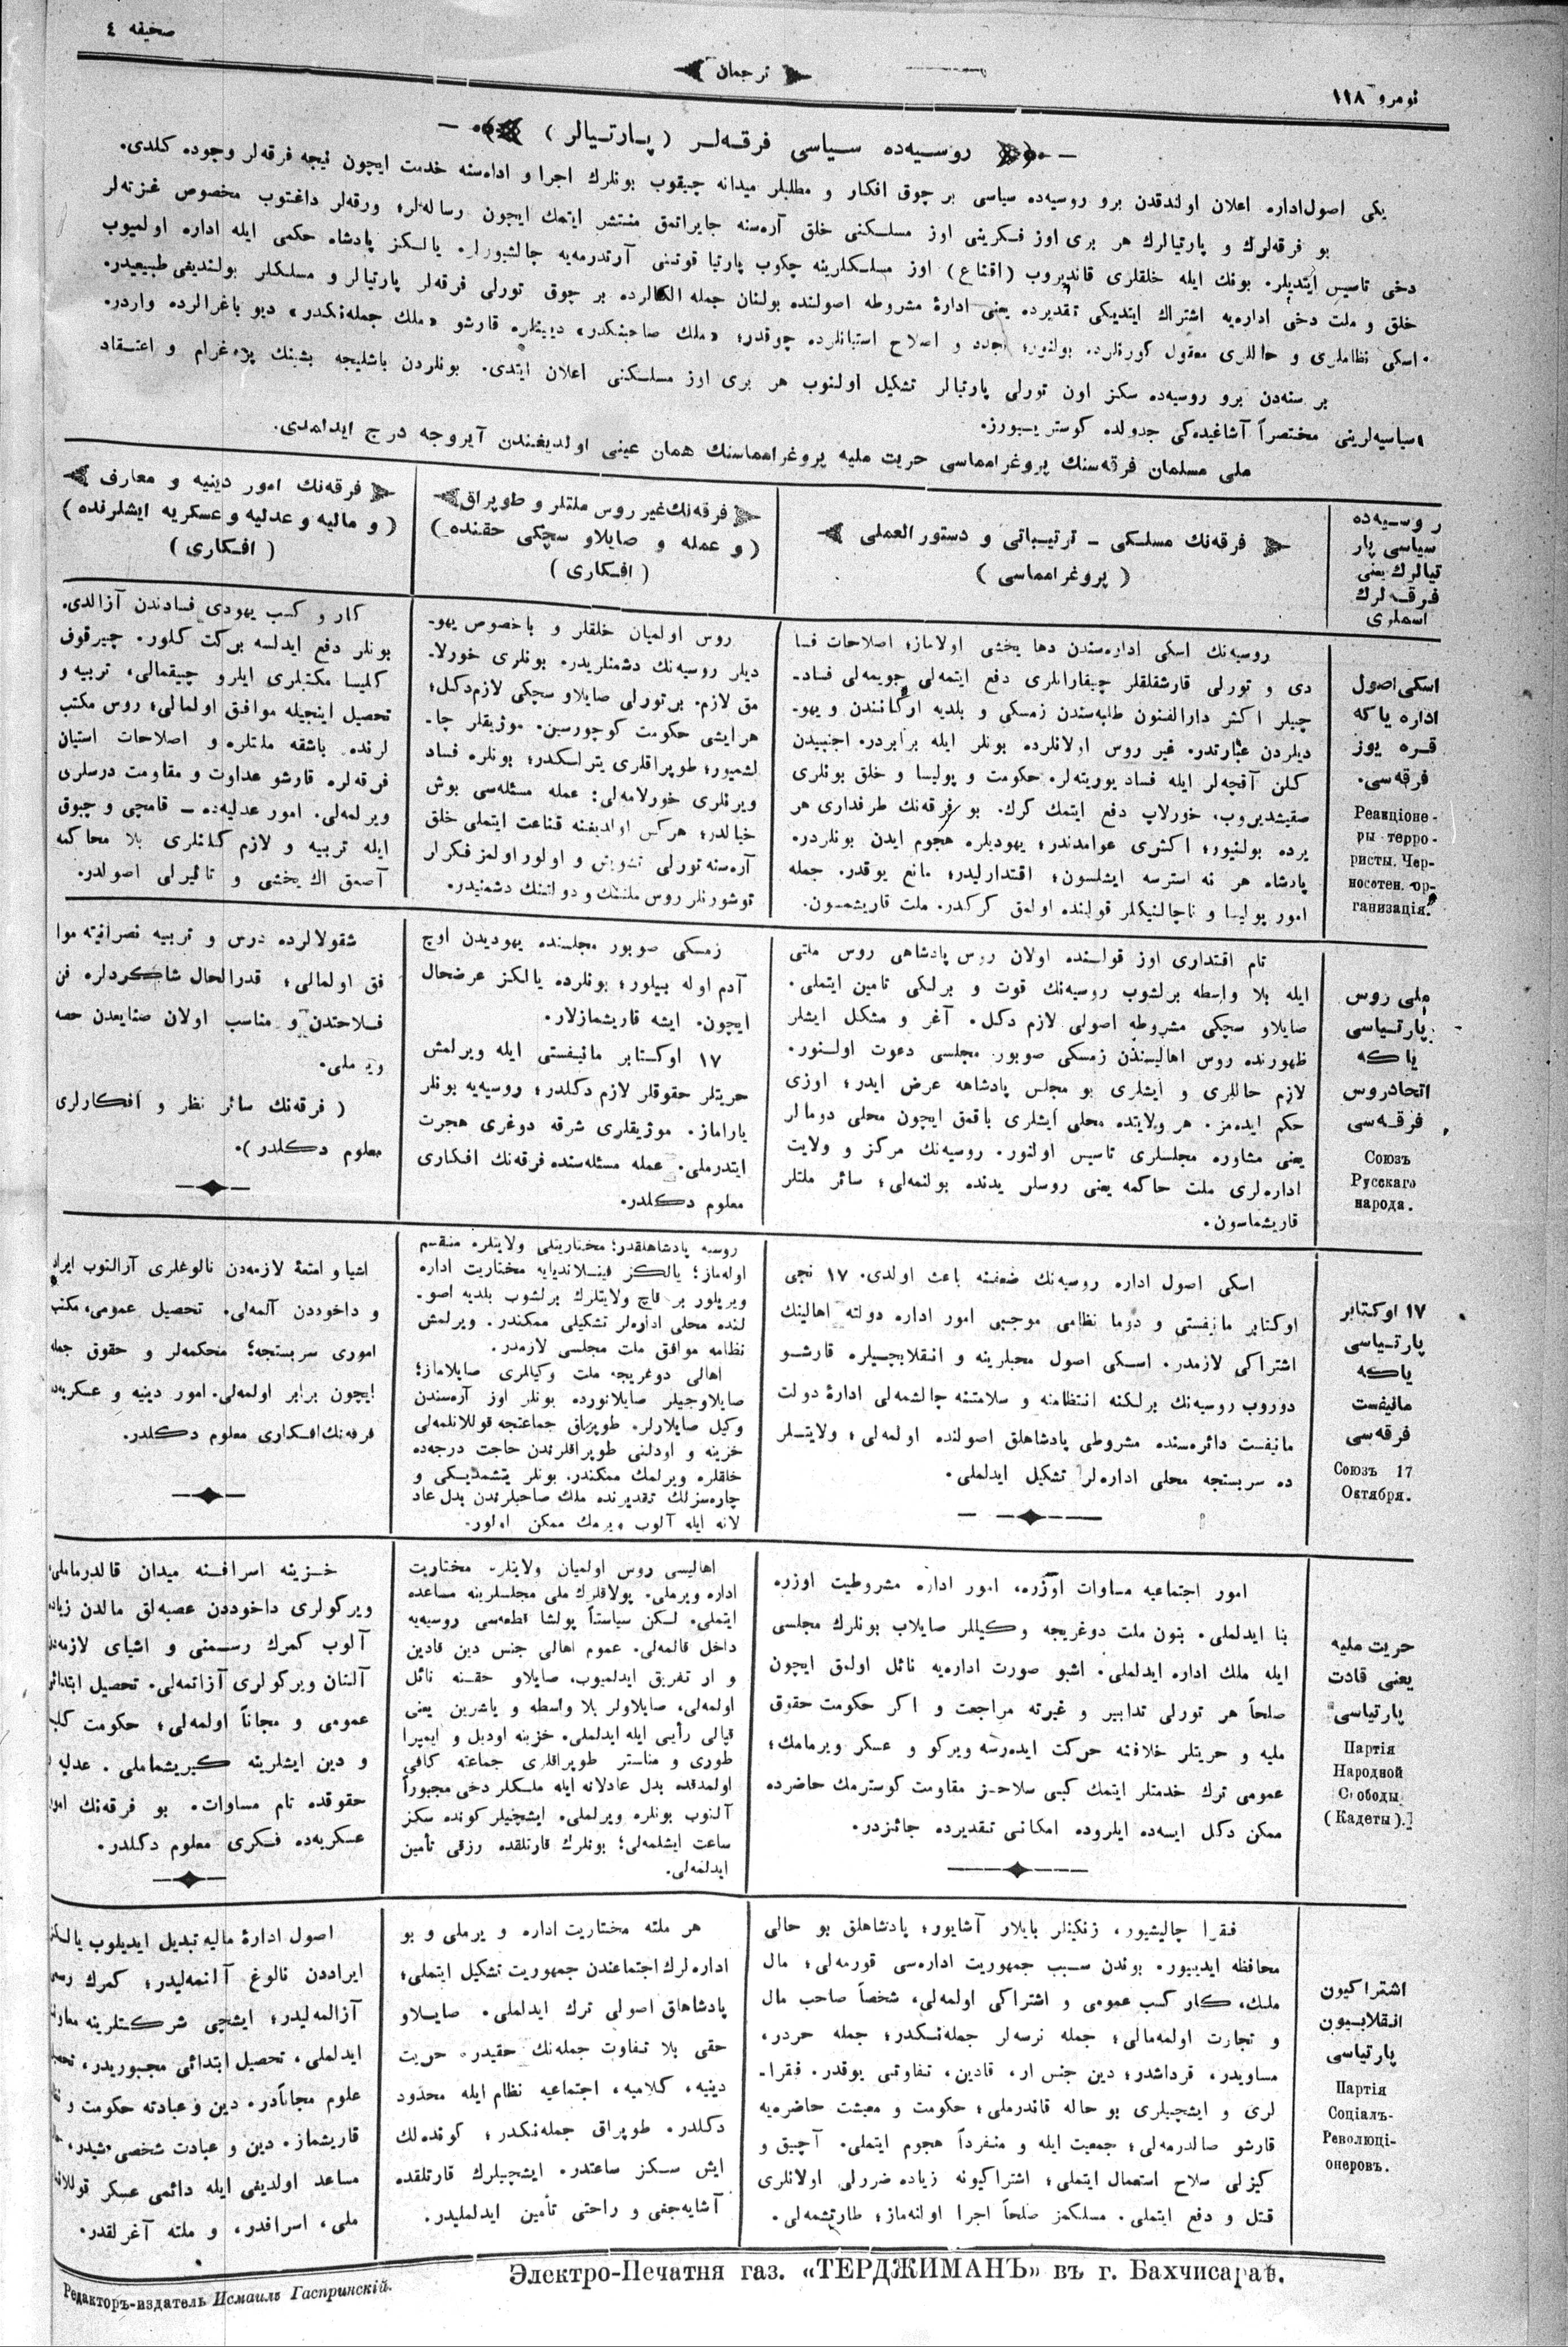 نومرو ١١٨
ترجمان
صحیفه ٤
روسیه‌ده سیاسی فرقه‌لر ( پارتیالر )
یکی اصول اداره اعلان اولندقدن برو روسیه‌ده سیاسی بر چوق افکار و مطلبلر میدانه چیقوب بونلرك اجرا و اداه‌سنه خدمت ایچون نیجه فرقه‌لر وجوده کلدی.
بو فرقه‌لرك و پارتیالرك هر بری اوز فکرینی اوز مسلکنی خلق آره‌سنه جایراتمق منتشر ایتمك ایچون رساله‌لر؛ ورقه‌لر داغتوب مخصوص غزته‌لر
دخی تاسیس ایتدیلر. بونك ایله خلقلری قاندیروب (اقناع) اوز مسلکلرینه چکوب پارتیا قوتنی آرتدرمه‌یه چالشیورلر. یالکز پادشاه حکمی ایله اداره اولمیوب
خلق و ملت دخی اداره‌یه اشتراك ایتدیکی تقدیرده یعنی ادارهٔ مشروطه اصولنده بولنان جمله الکالرده بر چوق تورلی فرقه‌لر پارتیالر و مسلکلر بولندیغی طبیعیدر.
اسکی نظاملری و حاللری معقول کورنلرده بولنور؛ تجدد و اصلاح استیانلرده چوقدر؛ «ملك صاحبنکدر» دیینلره قارشو «ملك جمله‌نکدر» دیو باغرالرده واردر.
بر سنه‌دن برو روسیه‌ده سکز اون تورلی پارتیالر تشکیل اولنوب هر بری اوز مسلکنی اعلان ایتدی. بونلردن باشلیجه بشینك پروغرام و اعتقاد
سیاسیه‌لرینی مختصراً آشاغیده‌کی جدولده کوستریيورز.
ملی مسلمان فرقه‌سنك پروغرامماسی حریت ملیه پروغرامماسنك همان عینی اولدیغندن آیروجه درج ایدلمدی.
روسیه‌ده
سیاسی پار
تیالرك یعنی
فرقه‌لرك
اسملری
فرقه‌نك مسلکی – ترتیباتی و دستور العملی
( پروغرامماسی )
فرقه‌نك غیر روس ملتلر و طوپراق
( و عمله و صایلاو سچکی حقنده )
( افکاری )
فرقه‌نك امور دینیه و معارف
( و مالیه و عدلیه و عسکریه ایشلرنده )
( افکاری )
اسکی اصول
اداره یاکه
قره یوز
فرقه‌سی.
Реакціоне-
ры терро-
ристы. Чер-
носотен. ор-
ганизація.
روسیه‌نك اسکی اداره‌سندن دها یخشی اولاماز؛ اصلاحات فسا
دی و تورلی قارشقلقلر چیقارانلری دفع ایتمه‌لی جویمه‌لی فساد-
چیلر اکثر دارالفنون طلبه‌سندن زمسکی و بلدیه ارکانندن و یهو-
دیلردن عبارتدر. غیر روس اولانلرده بونلر ایله برابردر. اجنبیدن
کلن آقچه‌لر ایله فساد یوریته‌لر. حکومت و پولیسا و خلق بونلری
صقیشدیروب، خورلاپ دفع ایتمك کرك. بو فرقه‌نك طرفداری هر
یرده بولنیور؛ اکثری عوامدندر؛ یهودیلره هجوم ایدن بونلردر.
پادشاه هر نه استرسه ایشلسون؛ اقتدارلیدر؛ مانع یوقدر. جمله
امور پولیسا و ناچالنیکلر قولنده اولمق کرکدر. ملت قاریشمسون.
روس اولمیان خلقلر و باخصوص یهو-
دیلر روسیه‌نك دشمنلریدر. بونلری خورلا-
مق لازم. بر تورلی صایلاو سچکی لازم دکل؛
هر ایشی حکومت کوچورسین. موژیقلر چا-
لشمیور؛ طوپراقلری یتراسکدر؛ بونلره فساد
ویرنلری خورلامه‌لی: عمله مسئله‌سی بوش
خیالدر؛ هرکس اولدیغنه قناعت ایتملی خلق
آره‌سنه تورلی تشویش و اولور اولمز فکرلر
توشورنلر روس ملتنك و دولتنك دشمنیدر.
کار و کسب یهودی فسادندن آزالدی.
بونلر دفع ایدلسه برکت کلور. چیرقوف
کلیسا مکتبلری ایلرو چیقمالی، تربیه و
تحصیل اینجیله موافق اولمالی؛ روس مکتب
لرنده باشقه ملتلره و اصلاحات استیان
فرقه‌لره قارشو عداوت و مقاومت درسلری
ویرلمه‌لی. امور عدلیه‌ده – قامچی و چبوق
ایله تربیه و لازم کلنلری بلا محاکمه
آصمق اك یخشی و تاثیرلی اصولدر.
ملی روس
پارتیاسی
یاکه
اتحاد روس
فرقه‌سی
Союзъ
Русскаго
народа.
تام اقتداری اوز قولنده اولان روس پادشاهی روس ملتی
ایله بلا واسطه برلشوب روسیه‌نك قوت و برلکی تامین ایتملی.
صایلاو سچکی مشروطه اصولی لازم دکل. آغر و مشکل ایشلر
ظهورنده روس اهالیسندن زمسکی صوبور مجلسی دعوت اولنور.
لازم حاللری و ایشلری بو مجلس پادشاهه عرض ایدر؛ اوزی
حکم ایده‌مز. هر ولایتده محلی ایشلری باقمق ایچون محلی دومالر
یعنی مشاوره مجلسلری تاسیس اولنور. روسیه‌نك مرکز و ولایت
اداره‌لری ملت حاکمه یعنی روسلر یدنده بولنمه‌لی؛ سائر ملتلر
قاریشماسون.
زمسکی صوبور مجلسنده یهودیدن اوچ
آدم اوله بیلور؛ بونلرده یالکز عرضحال
ایچون. ایشه قاریشمازلار.
١٧ اوکتابر مانیفستی ایله ویرلمش
حریتلر حقوقلر لازم دکلدر؛ روسیه‌یه بونلر
یاراماز. موژیقلری شرقه دوغری هجرت
ایتدرملی. عمله مسئله‌سنده فرقه‌نك افکاری
معلوم دکلدر.
شقولالرده درس و تربیه نصرانیته موا
فق اولمالی؛ قدرالحال شاکردلره فن
فلاحتدن و مناسب اولان صنایعدن حصه
ویرملی.
( فرقه‌نك سائر نظر و افکارلری
معلوم دکلدر ).
١٧ اوکتابر
پارتیاسی
یاکه
مانیفست
فرقه‌سی
Союзъ 17
Октября.
اسکی اصول اداره روسیه‌نك ضعفنه باعث اولدی. ١٧ نجی
اوکتابر مانیفستی و دوما نظامی موجبی امور اداره دولته اهالینك
اشتراکی لازمدر. اسکی اصول محبلرینه و انقلابچیلره قارشو
دوروب روسیه‌نك برلکنه انتظامنه و سلامتنه چالشمه‌لی ادارهٔ دولت
مانیفست دائره‌سنده مشروطی پادشاهلق اصولنده اولمه‌لی؛ ولایتلر
ده سربستجه محلی اداره‌لر تشکیل ایدلملی.
روسیه پادشاهلقدر؛ مختاریتلی ولایتلره منقسم
اوله‌ماز؛ یالکز فینلاندیایه مختاریت اداره
ویریلور بر قاچ ولایتلرك برلشوب بلدیه اصو-
لنده محلی اداره‌لر تشکیلی ممکندر. ویرلمش
نظامه موافق ملت مجلسی لازمدر.
اهالی دوغریجه ملت وکیللری صایلاماز؛
صایلاوجیلر صایلانورده بونلر اوز آره‌سندن
وکیل صایلارلر. طوپراق جماعتجه قوللانلمه‌لی
خزینه و اودلنی طوپراقلرندن حاجت درجه‌ده
خلقلره ویرلمك ممکندر. بونلر یتشمدیکی و
چاره‌سزلك تقدیرنده ملك صاحبلرندن بدل عاد
لانه ایله آلوب ویرمك ممکن اولور.
اشیا و امتعهٔ لازمه‌دن نالوغلری آزالتوب ایراد
و داخوددن آلمه‌لی. تحصیل عمومی، مکتب
اموری سربستجه؛ محکمه‌لر و حقوق جمله
ایچون برابر اولمه‌لی. امور دینیه و عسکریه‌ده
فرقه‌نك افکاری معلوم دکلدر.
حریت ملیه
یعنی قادت
پارتیاسی
Партія
Народной
Свободы
(Кадеты).
امور اجتماعیه مساوات اوزره، امور اداره مشروطیت اوزره
بنا ایدلملی. بتون ملت دوغریجه وکیللر صایلاب بونلرك مجلسی
ایله ملك اداره ایدلملی. اشبو صورت اداره‌یه نائل اولمق ایچون
صلحاً هر تورلی تدابیر و غیرته مراجعت و اکر حکومت حقوق
ملیه و حریتلر خلافنه حرکت ایدرسه ویرکو و عسکر ویرمامك؛
عمومی ترك خدمتلر ایتمك کبی سلاحسز مقاومت کوسترمك حاضرده
ممکن دکل ایسه‌ده ایلروده امکانی تقدیرده جائزدر.
اهالیسی روس اولمیان ولایتلره مختاریت
اداره ویرملی. پولاقلرك ملی مجلسلرینه مساعده
ایتملی. لکن سیاستاً پولشا قطعه‌سی روسیه‌یه
داخل قالمه‌لی. عموم اهالی جنس دین قادین
و ار تفریق ایدلمیوب، صایلاو حقنه نائل
اولمه‌لی، صایلاولر بلا واسطه و یاشرین یعنی
قپالی رأیی ایله ایدلملی. خزینه اودیل و ایمپرا
طوری و مناستر طوپراقلری جماعته کافی
اولمدقده بدل عادلانه ایله ملکلر دخی مجبوراً
آلنوب بونلره ویرلملی. ایشچیلر کونده سکز
ساعت ایشلمه‌لی؛ بونلرك قارتلقده رزقی تأمین
ایدلمه‌لی.
خزینه اسرافنه میدان قالدرماملی
ویرکولری داخوددن عصبه‌لق مالدن زیاده
آلوب کمرك رسمنی و اشیای لازمه‌دن
آلنان ویرکولری آزاتمه‌لی. تحصیل ابتدائی
عمومی و مجاناً اولمه‌لی؛ حکومت کلیسا
و دین ایشلرینه کیریشماملی. عدلیه
حقوقده تام مساوات. بو فرقه‌نك امور
عسکریه‌ده فکری معلوم دکلدر.
اشتراکیون
انقلابیون
پارتیاسی
Партія
Соціалъ-
Революці-
онеровъ.
فقرا چالیشیور، زنکینلر بایلار آشایور؛ پادشاهلق بو حالی
محافظه ایدیيور. بوندن سبب جمهوریت اداره‌سی قورمه‌لی؛ مال
ملك، کار کسب عمومی و اشتراکی اولمه‌لی، شخصاً صاحب مال
و تجارت اولمه‌مالی؛ جمله نرسه‌لر جمله‌نکدر؛ جمله حردر،
مساویدر، قرداشدر؛ دین جنس ار، قادین، تفاوتی یوقدر. فقرا-
لری و ایشچیلری بو حاله قاندرملی؛ حکومت و معیشت حاضره‌یه
قارشو صالدرمه‌لی؛ جمعیت ایله و منفرداً هجوم ایتملی. آچیق و
کیزلی سلاح استعمال ایتملی؛ اشتراکیونه زیاده ضررلی اولانلری
قتل و دفع ایتملی. مسلکمز صلحاً اجرا اولنه‌ماز؛ طارتشمه‌لی.
هر ملته مختاریت اداره ویرملی و بو
اداره‌لرك اجتماعندن جمهوریت تشکیل ایتملی؛
پادشاهلق اصولی ترك ایدلملی. صایلاو
حقی بلا تفاوت جمله‌نك حقیدر. حریت
دینیه، کلامیه، اجتماعیه نظام ایله محدود
دکلدر. طوپراق جمله‌نکدر؛ کونده‌لك
ایش سکز ساعتدر. ایشچیلرك قارتلقده
آشایه‌جغی و راحتی تأمین ایدلملیدر.
اصول ادارهٔ مالیه تبدیل ایدیلوب یالکز
ایراددن نالوغ آلنمه‌لیدر؛ کمرك رسمی
آزالمه‌لیدر؛ ایشچی شرکتلرینه معاونت
ایدلملی، تحصیل ابتدائی مجبوریدر، تحصیل
علوم مجاناًدر. دین و عبادته حکومت و
قاریشماز. دین و عبادت شخصی ایشیدر،
مساعد اولدیغی ایله دائمی عسکر قوللانما
ملی، اسرافدر، و ملته آغرلقدر.
Электро-Печатня газ. «ТЕРДЖИМАНЪ» въ г. Бахчисараѣ.
Редакторъ-издатель Исмаилъ Гаспринскій.